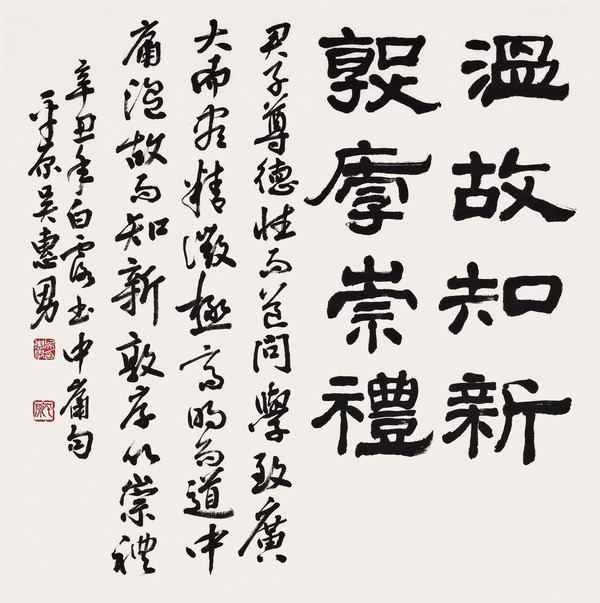 溫故知新
敦厚崇禮
君子尊德性而道問學致廣
大而盡精微極高明而道中
庸溫故而知新敦厚以崇禮
辛丑年白露书中庸句
平原吴惠男